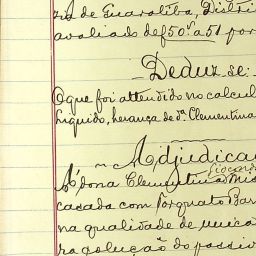 zia de Guaratiba, Distri
avaliado de f 50v a 51 por
Deduz-se:
O que foi attendido no calcul
Liquido, herança de Da. Clementina
Adjudica
A' dona Clementina Mis
casada com Porquato Bar
na qualidade de unica
ra solução do passiv